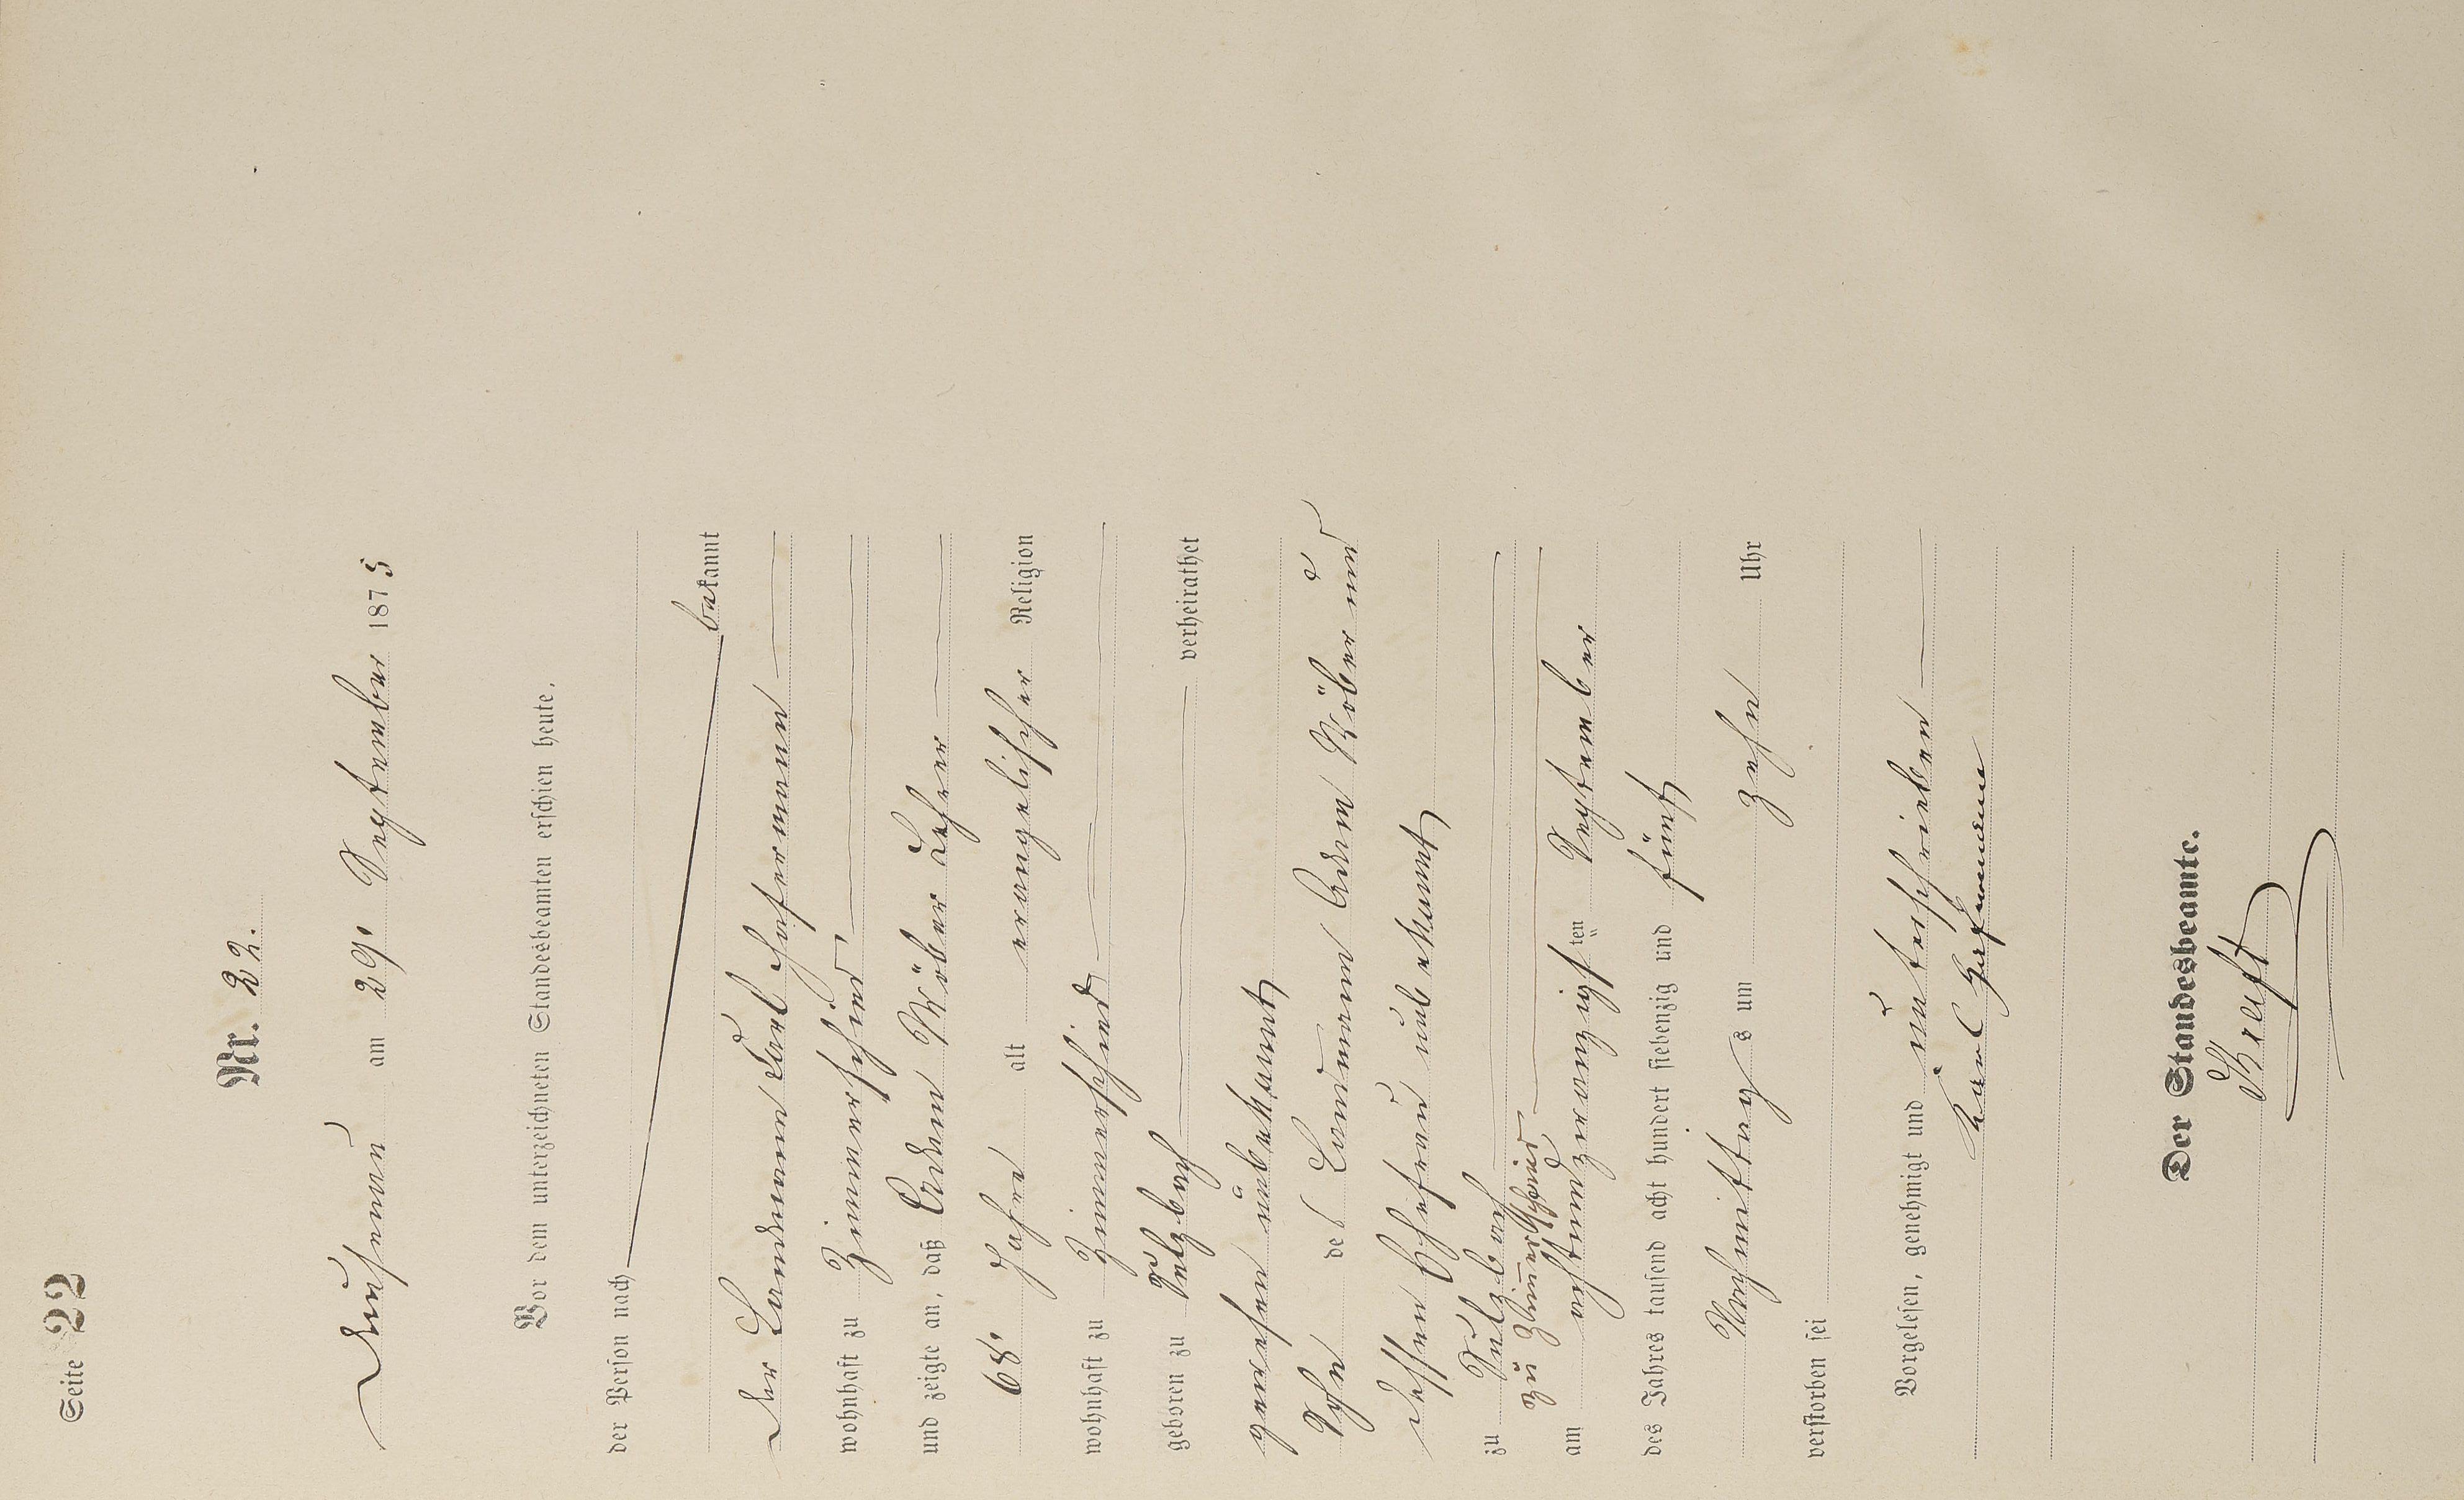 Seite 22
Nr. 22.
Neusenau am 29. September 1875
Vor dem unterzeichneten Standesbeamten erschien heute,
der Person nach
bekannt
der Landmann Karl Hofermann
wohnhaft zu Zimmerschied,
und zeigte an, daß Adam Röber Lehrer
68. Jahre alt evangelischer Religion
wohnhaft zu Zimmerschied
geboren zu Sulzbach verheirathet
gewesen unbekannt
Sohn des Landmann Adam Röber und
dessen Ehefrau unbekannt
zu Sulzbach
zu Zimmerschied
am achtundzwanzigsten September
des Jahres tausend acht hundert siebenzig und fünf
Nachmittags um zehn Uhr
verstorben sei
Vorgelesen, genehmigt und unterschrieben
Karl
Der Standesbeamte.
Kraft